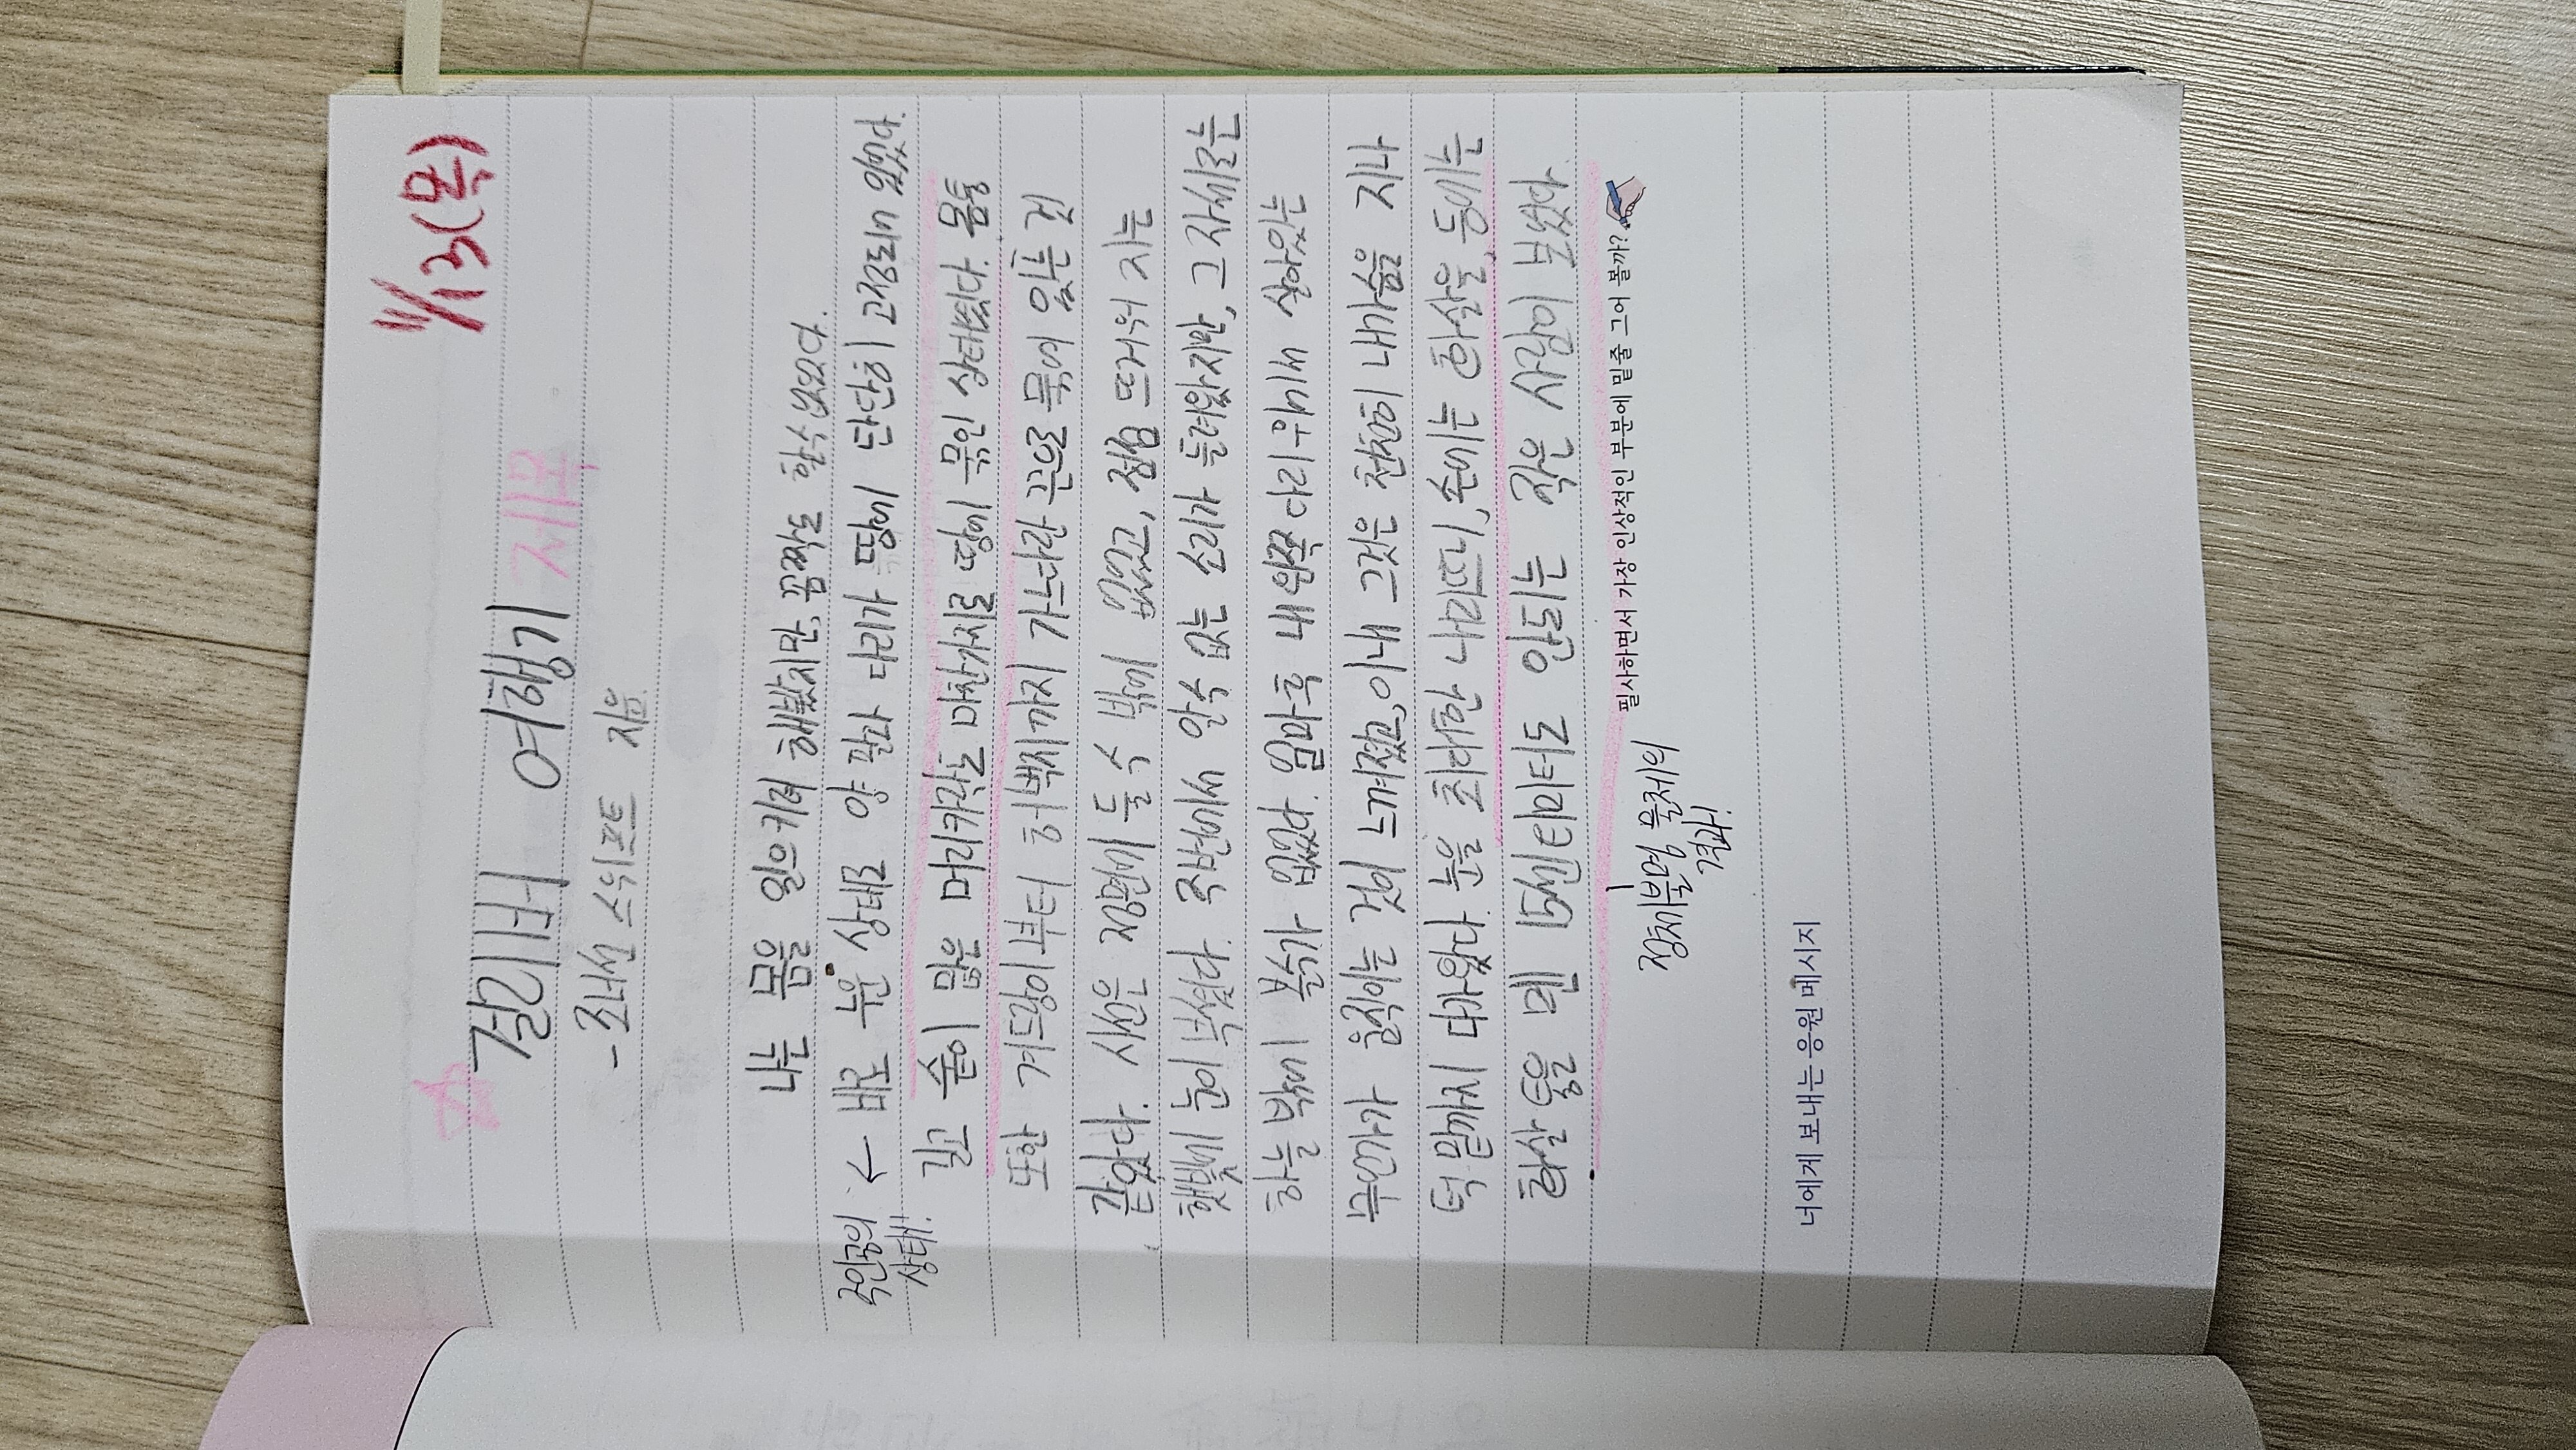 11/13(목)
걸리버 여행기 제목
- 조나단 스위프트 지음
나는 몸을 일으키려 해봤지만, 꼼짝도 할 수 없었다.
주인공의 상태! ← 바로 누운 상태로 양 팔과 다리가 땅에 단단히 고정되어 있었다.
길고 숱이 많은 머리카락도 마찬가지로 땅에 묶인 상태였다. 몸통
또한 겨드랑이부터 허벅지까지 가느다란 끈으로 묶여 있는 것
같았다. 시선은 정면에 둘 수 밖에 없었고, 점점 뜨거워 지는
햇빛에 눈이 부셨다. 주변에서 알 수 없는 소리가 들려왔지만, 그 자세로는
하늘 밖에 볼 수가 없었다. 얼마 후 내 왼쪽 다리 위에서 살아있는
무언가가 움직이는 것이 느껴졌고, 이내 그것은 천천히 내 가슴을 지나
턱 밑까지 다가왔다. 눈을 최대한 내리뜨니, 손에는 화살을, 등에는
화살통을 멘 15센티미터도 안되는 작은 사람이 보였다.
필사하면서 가장 인상적인 부분에 밑줄 그어 볼까?
정체불명 물체의
결과!
너에게 보내는 응원 메시지